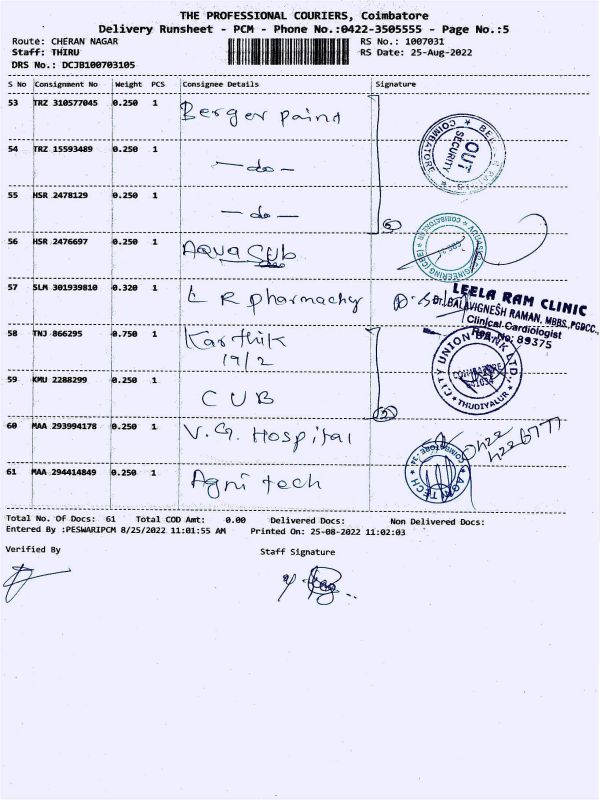 THE PROFESSIONAL COURIERS, Coimbatore
Delivery Runsheet - PCM - Phone No.:0422-3505555 - Page No.:5
Route: CHERAN NAGAR RS No.: 1007031
Staff: THIRU RS Date: 25-Aug-2022
DRS No.: DCJB100703105
S No Consignment No Weight PCS Consignee Details Signature
53 TRZ 310577045 0.250 1 Berger paind
54 TRZ 15593489 0.250 1 — do —
55 HSR 2478129 0.250 1 — do —
56 HSR 2476697 0.250 1 Aqua Sub
57 SLM 301939810 0.320 1 L R pharmachy
LEELA RAM CLINIC
Dr. BALAVIGNESH RAMAN, MBBS.,PGDCC.,
Clinical Cardiologist
Reg. No: 89375
58 TNJ 866295 0.750 1 Karthik
19/2
59 KMU 2288299 0.250 1 CUB
CITY UNION BANK LTD.
COIMBATORE
641034
THUDIYALUR
60 MAA 293994178 0.250 1 V.G. Hospital
61 MAA 294414849 0.250 1 Agni tech
OUT
SECURITY
COIMBATORE
Total No. Of Docs: 61 Total COD Amt: 0.00 Delivered Docs: Non Delivered Docs:
Entered By :PESWARIPCM 8/25/2022 11:01:55 AM Printed On: 25-08-2022 11:02:03
Verified By Staff Signature